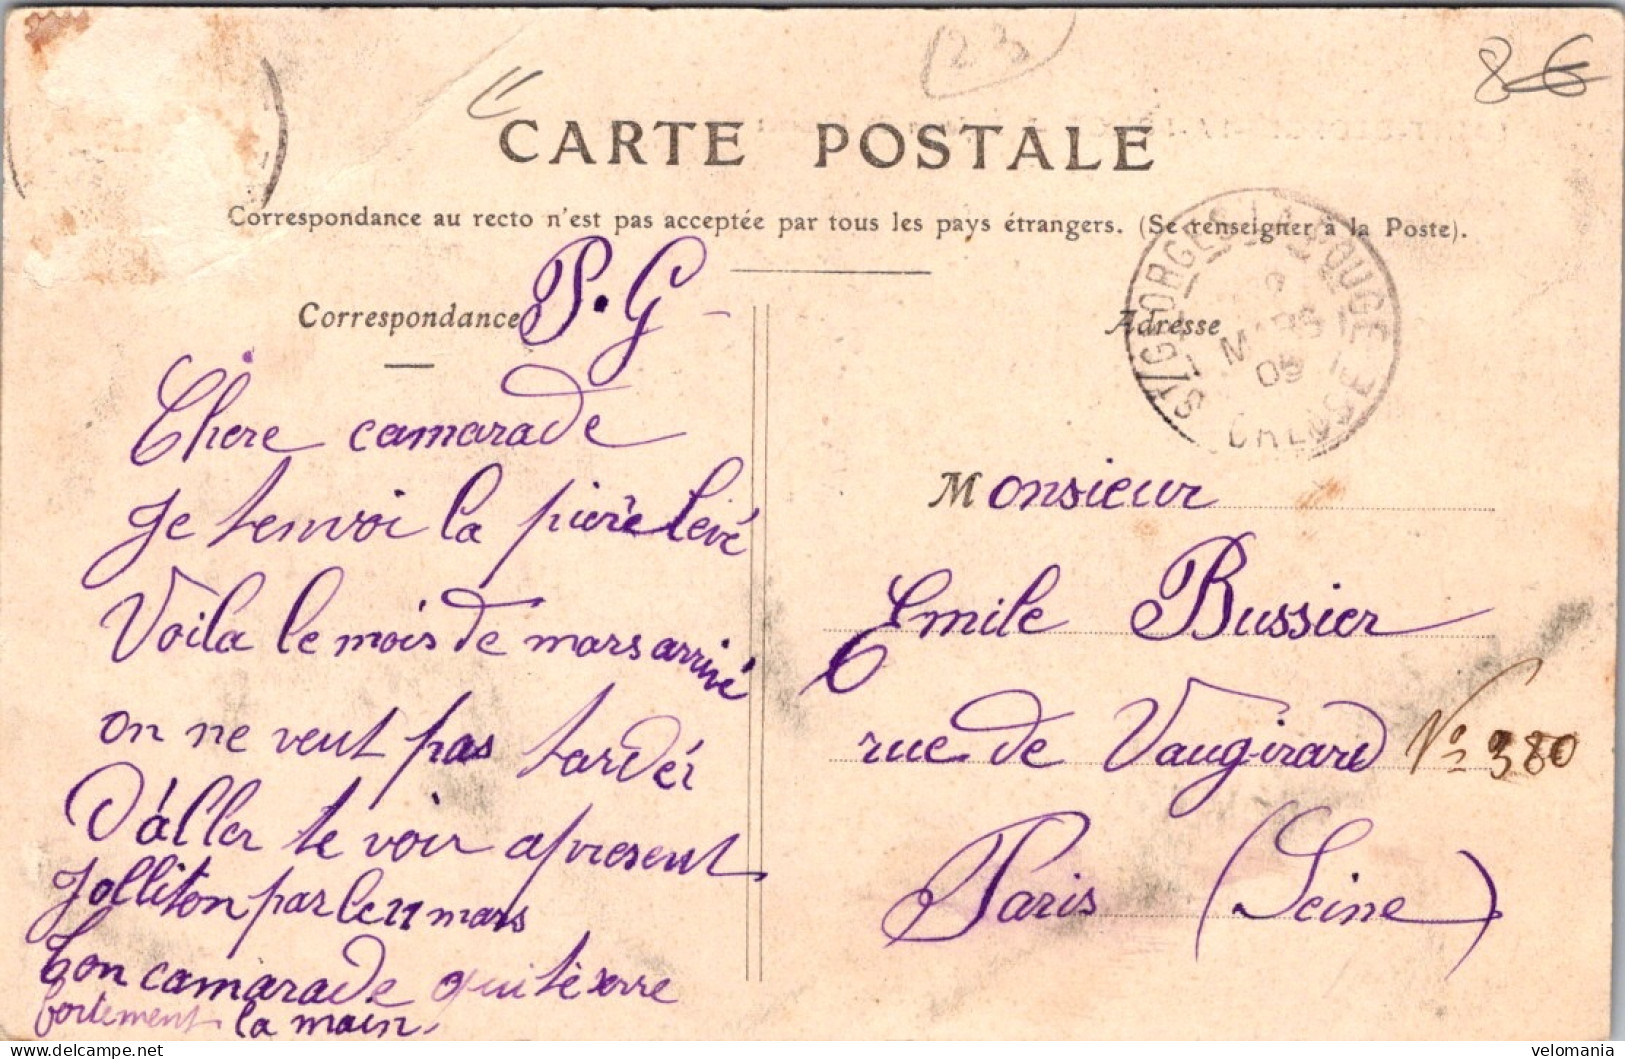 (23
8 6
CARTE POSTALE
Correspondance au recto n'est pas acceptée par tous les pays étrangers. (Se renseigner à la Poste).
Correspondance
P. G
Chere camarade
Je tenvoi la pière levé
Voila le mois de mars arrivé
on ne veut pas tardér
D'áller te voir apresent
Jolliton par le 11 mars
Ton camarade qui té serre
fortement la main.
Adresse
ST GEORGES-LA-POUGE
MARS
09
CREUSE
Monsieur
Emile Bussier
rue de Vaugirard No 380
Paris (Seine)
delcampe.net
velomania